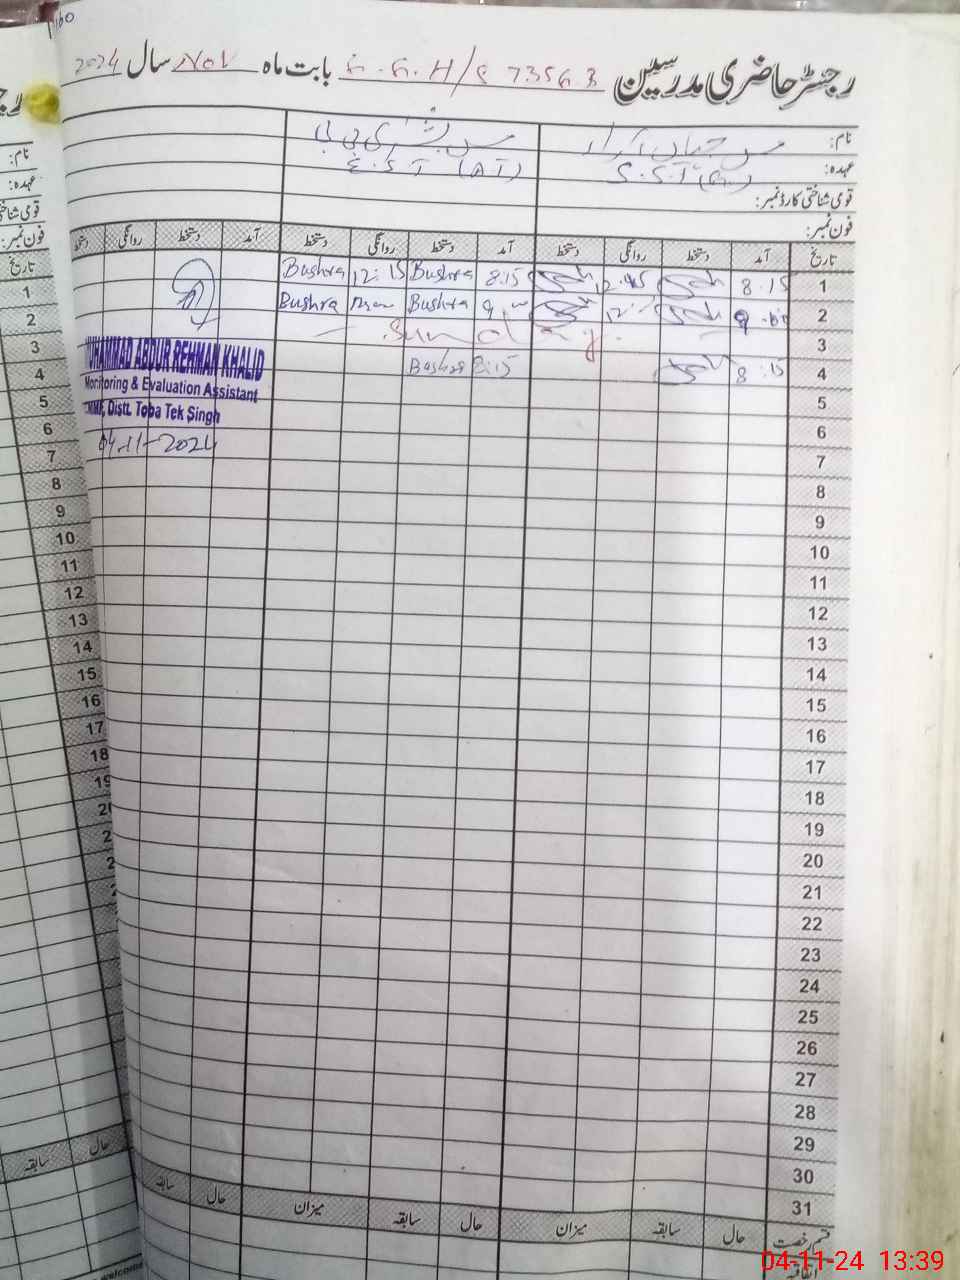 رجسٹر حاضری مدرسین G.G.H/S 735 G.B بابت ماہ Nov سال 2024
نام:
عہدہ: S.S.T
E.S.T (AT)
قومی شناختی کارڈ نمبر:
فون نمبر:
تاریخ آمد دستخط روانگی دستخط آمد دستخط روانگی دستخط آمد دستخط روانگی
1 8.15 12:45 8:15 Bushra 12:15 Bushra
2 9.00 9 Bushra Bushra
3 Sunday
4 8:15 8:15 Bushra
MUHAMMAD ABDUR REHMAN KHALID
Monitoring & Evaluation Assistant
Distt. Toba Tek Singh
04-11-2024
5
6
7
8
9
10
11
12
13
14
15
16
17
18
19
20
21
22
23
24
25
26
27
28
29
30
31
قسم رخصت حال سابقہ میزان حال سابقہ میزان حال
اتفاقیہ
نام:
عہدہ:
فون نمبر:
تاریخ
1
2
3
4
5
6
7
8
9
10
11
12
13
14
15
16
17
18
حال سابقہ
welcome
04-11-24 13:39